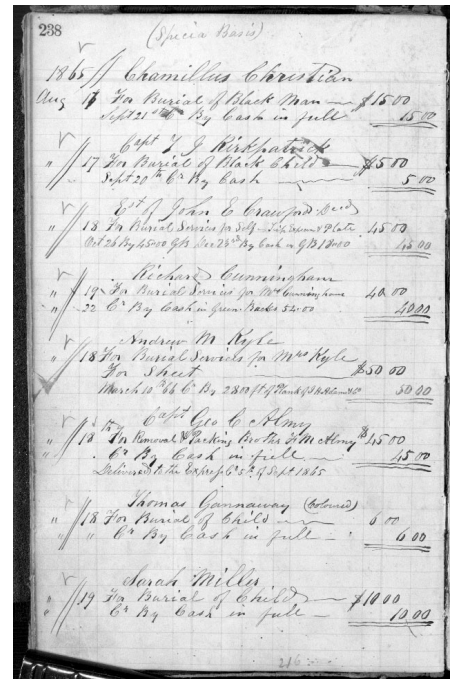 238
(Specia Basis)
1865 Chamillus Christian
Aug 17 For Burial of Black Man — $15 00
Sept 21st Cr By Cash in full 15 00
Capt T J Kirkpatrick
" 17 For Burial of Black Child — $5 00
Sept 20th Cr By Cash — 5 00
Est of John E Crawford Decd
" 18 For Burial Services for Self — Plate 45 00
Oct 26 By 45 00 GB Dec 23rd By Cash in GB 45 00
Richard Cunningham
" 19 For Burial Services for Mrs Cunningham 40 00
" 22 Cr By Cash in Green Backs 54 00 40 00
Andrew M Kyle
" 18 For Burial Services for Mrs Kyle
For Sheet $50 00
March 10th 66 Cr By 2800 ft of Plank of 50 00
Capt Geo C Almy
" 18 For Removal & Packing Brother Almy $45 00
" Cr By Cash in full — 45 00
Delivered to the Express Co 5th of Sept 1865
Thomas Gannaway (Coloured)
" 18 For Burial of Child — 6 00
" " Cr By Cash in full — 6 00
Sarah Miller
" 19 For Burial of Child — $10 00
" Cr By Cash in full — 10 00
216